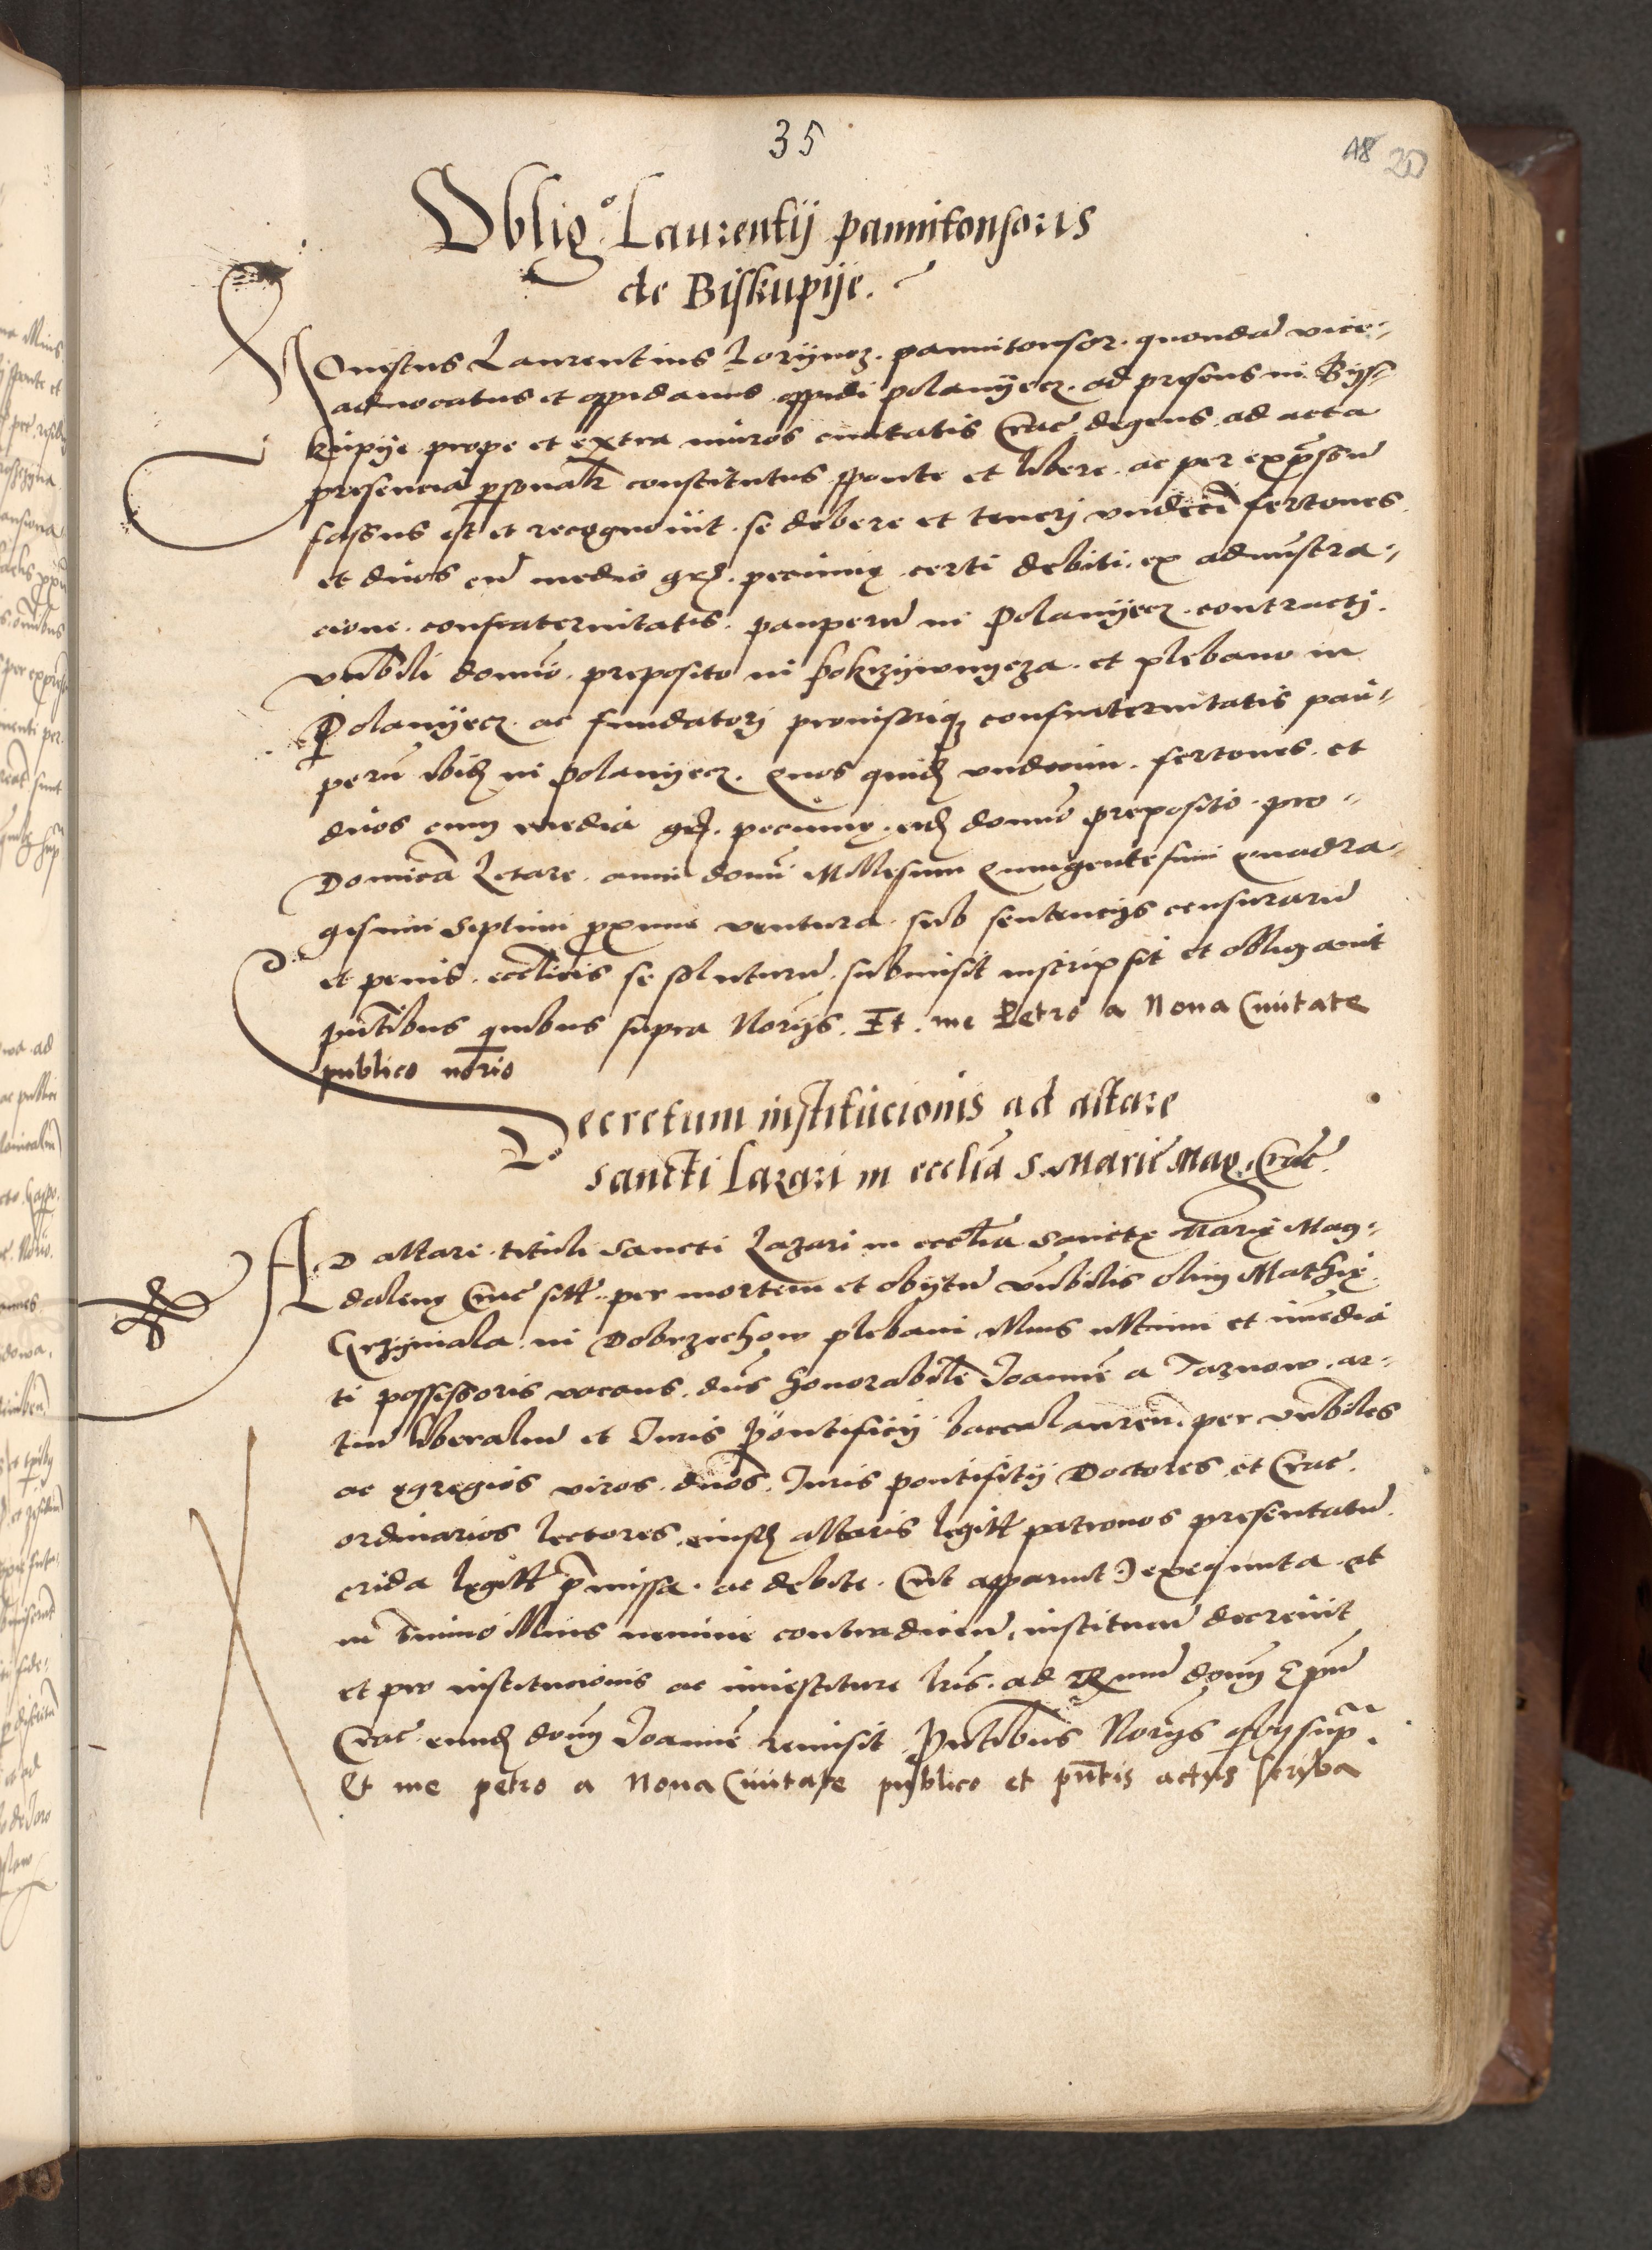 35
18 20
Oblig.º Laurentij pannitonsoris
de Biskupije.
Honestus Laurentius Lorijncz. pannitonsor. quondā vice-
advocatus et oppidanus oppidi polanijecz. ad presens in Bijs-
kupije prope et extra muros civitatis Crac̄. degens. ad acta
presencia p̄sonalr̄ constitutus sponte et libere. ac per exp̄ssū
fassus est et recognovit. se debere et tenerj undecī fertones
et duos cū medio gr̄. pecunię certi debiti. ex admīstra-
cione confraternitatis. pauperū in Polanijecz. contractj.
vn̄bili domīo. preposito in Pokrzijwnycza. et plebano in
Polanijecz. ac fundatorj provisoriq₃ confraternitatis pau-
perū ibid₃ in Polanijecz. Quos quid₃ undecim. fertones. et
duos cum media gr̄. pecunię. eid₃ domīo preposito. pro
Domīca Letare. anni domī Millesimi Quingentesimi Quadra-
gesimi septimi p̄xime ventura. sub sentencijs censurarū
et penis. eccl̄icis se soluturū. submisit inscripsit et obligavit
pn̄tibus quibus supra Norijs. Et. me Petro a Nova Civitate
publico nōrio
Decretum institucionis ad altare
sancti Lazari in eccl̄ia S. Marie Mag. Crac̄.
AD altare tituli Sancti Lazari in eccl̄ia Sanctę Marię Mag-
dalenę Crac̄ sitt̄. per mortem et obijtū vn̄bilis olim Mathię
Grzymala. in Dobrzechow plebani Illius ultimi et imedia
ti possessoris vacans. dn̄s honorabilē Joannē a Tarnow. ar-
tiū liberaliū et Juris Pontificij baccalaureū. per vn̄biles
ac egregios viros. dn̄os. Juris pontificij Doctores et Crac̄.
ordinarios lectores. eiusd₃ altaris legitt̄ patronos presentatū.
crida legitt̄ p̄missa. ac debite. (ut apparuit) exequuta et
in t̄mino Illius nemine contradicen̄. instituen̄ decrevit
et pro institucionis ac investiture lr̄is. ad Rm̄um domī Ep̄um
Crac̄ eund₃ domī Joannē remisit Pn̄tibus Norijs qbꝫ sup̄.
Et me petro a Nova Civitate publico et pn̄tis actus scryba